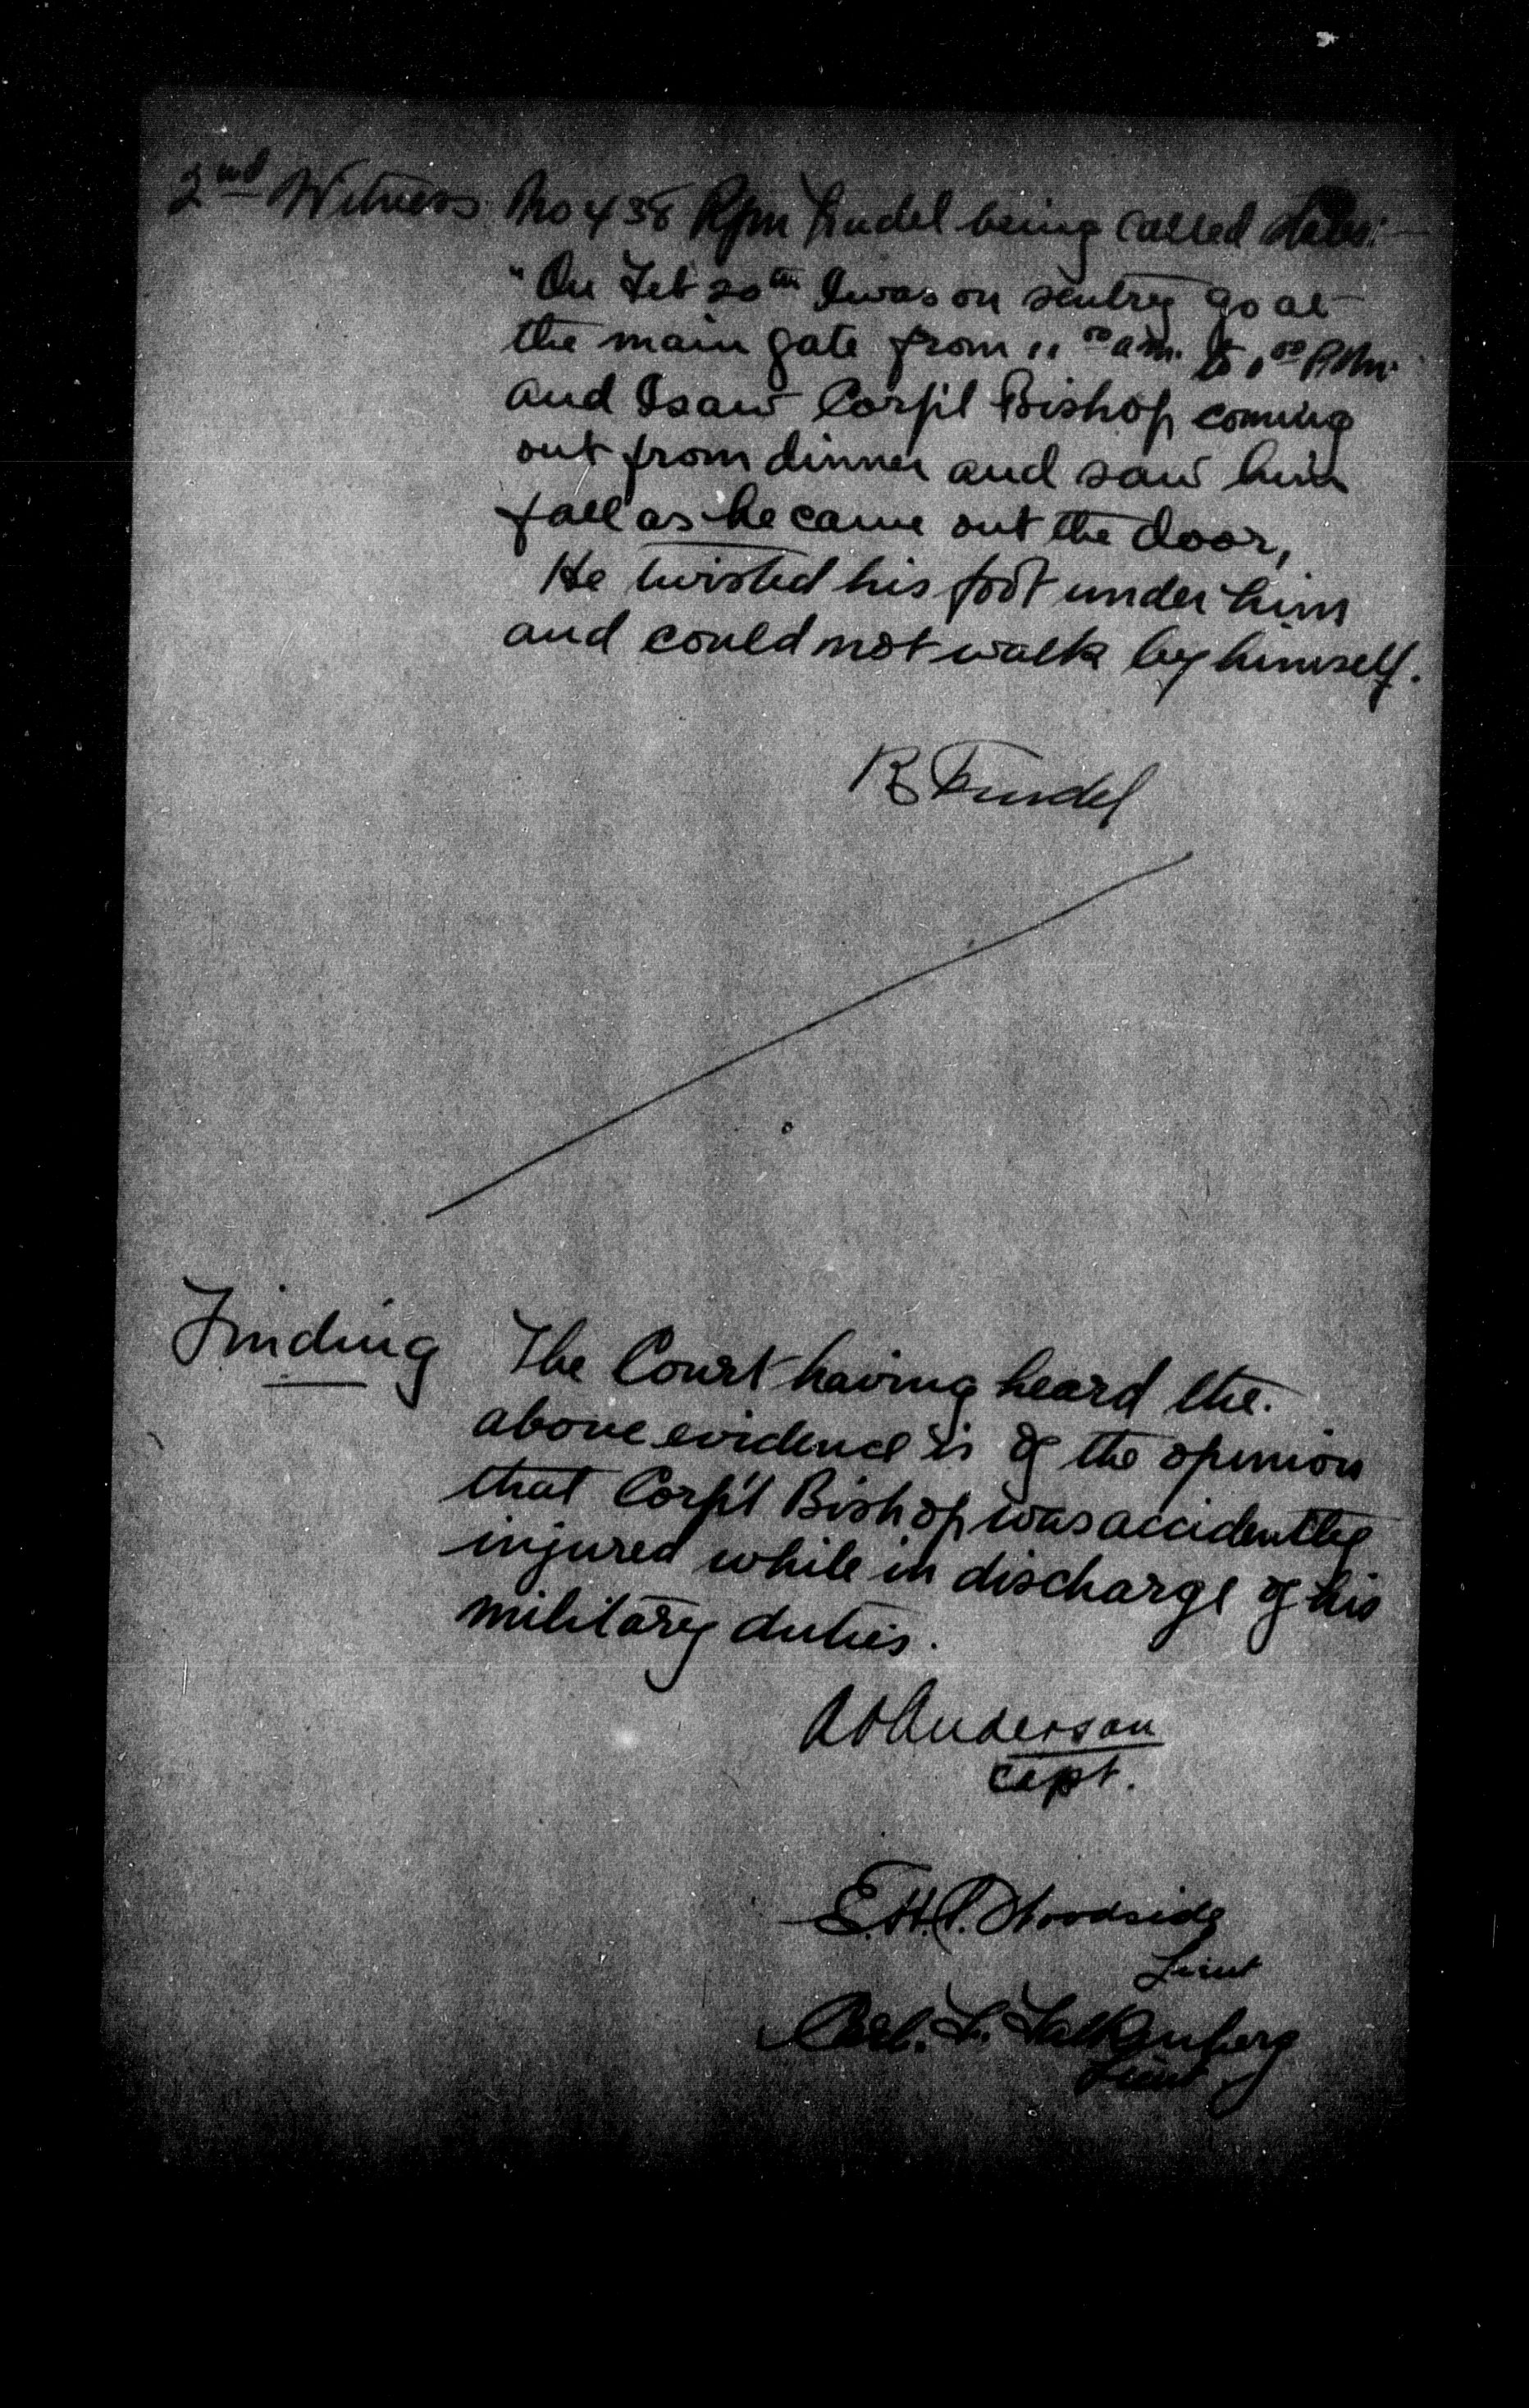 2nd Witness. No 438 Rfm Trudel being called states:—
"On Feb 20th I was on sentry go at
the main gate from 11 00 a.m. to 1 00 P.M.
and I saw Corp'l Bishop coming
out from dinner and saw him
fall as he came out the door,
He twisted his foot under him
and could not walk by himself.
R Trudel
Finding The Court having heard the
above evidence is of the opinion
that Corp'l Bishop was accidently
injured while in discharge of his
military duties.
Anderson
Capt.
E.H.P. Woodside
Lieut
Carl. F. Falkenberg
Lieut